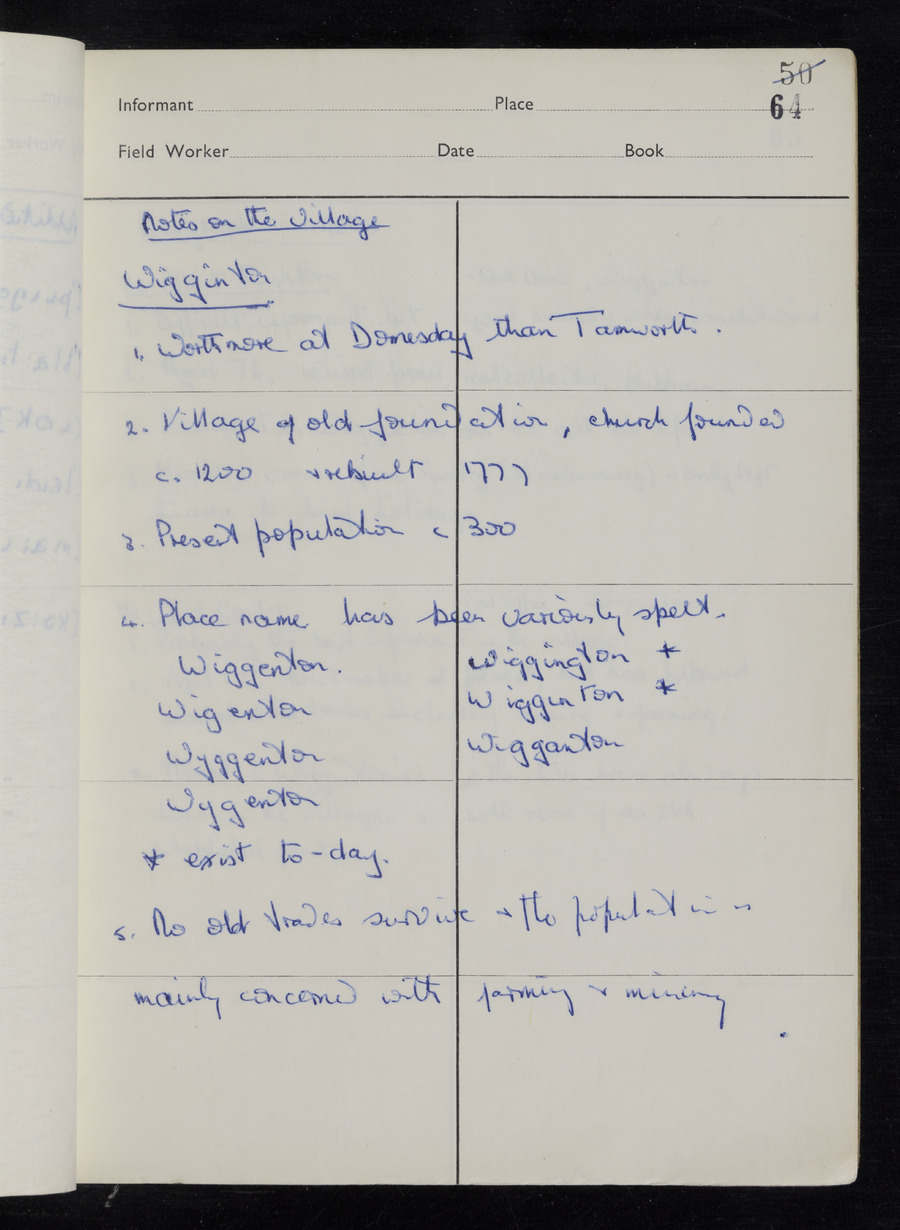 50
Informant Place 64
Field Worker Date Book
Notes on the Village
Wigginton
1. Worth more at Domesday than Tamworth.
2. Village of old foundation, church founded
c. 1200 & rebuilt 1777
3. Present population c 300
4. Place name has been variously spelt.
Wiggenton. Wiggington *
Wigenton Wigginton *
Wyggenton Wigganton
Wygenton
* exist to-day.
5. No old trades survive & the population is
mainly concerned with farming & mining